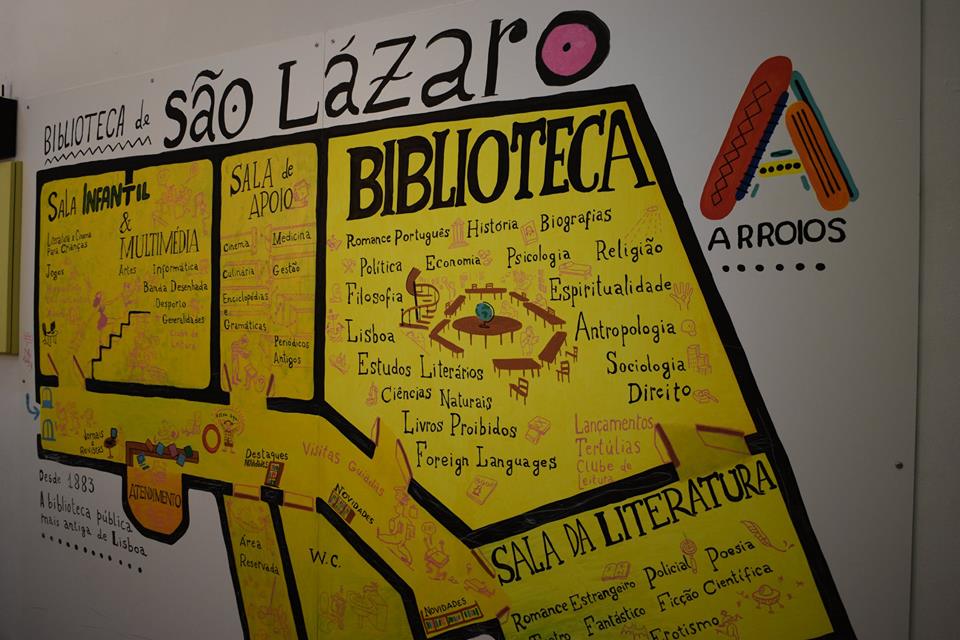 BIBLIOTECA de São Lázaro
ARROIOS
Sala INFANTIL
&
MULTIMÉDIA
Literatura e Cinema
Para Crianças
Jogos
Artes Informática
Banda Desenhada
Desporto
Generalidades
Clube de
Leitura
SALA de
APOIO
Cinema Medicina
Culinária Gestão
Enciclopédias
e
Gramáticas
Periódicos
Antigos
BIBLIOTECA
Romance Português História Biografias
Política Economia Psicologia Religião
Filosofia Espiritualidade
Lisboa Antropologia
Estudos Literários Sociologia
Ciências Naturais Direito
Livros Proibidos
Foreign Languages
Lançamentos
Tertúlias
Clube de
Leitura
Jornais
e
Revistas
ATENDIMENTO
Destaques
NOVIDADES
Visitas Guiadas
NOVIDADES
Desde 1883
A biblioteca pública
mais antiga de Lisboa
Área
Reservada
W.C.
NOVIDADES
SALA DA LITERATURA
Romance Estrangeiro Policial Poesia
Teatro Fantástico Ficção Científica
Erotismo